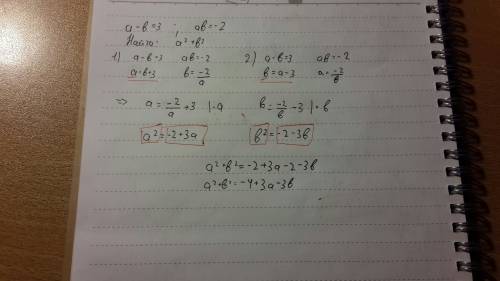 a-b=3 ; ab=-2
Найти: a²+b²
1) a-b=3 ab=-2 2) a-b=3 ab=-2
a=b+3 b=\frac{-2}{a} b=a-3 a=\frac{-2}{b}
⇒ a=\frac{-2}{a}+3 |·a b=\frac{-2}{b}-3 |·b
a²=-2+3a b²=-2-3b
a²+b²=-2+3a-2-3b
a²+b²=-4+3a-3b